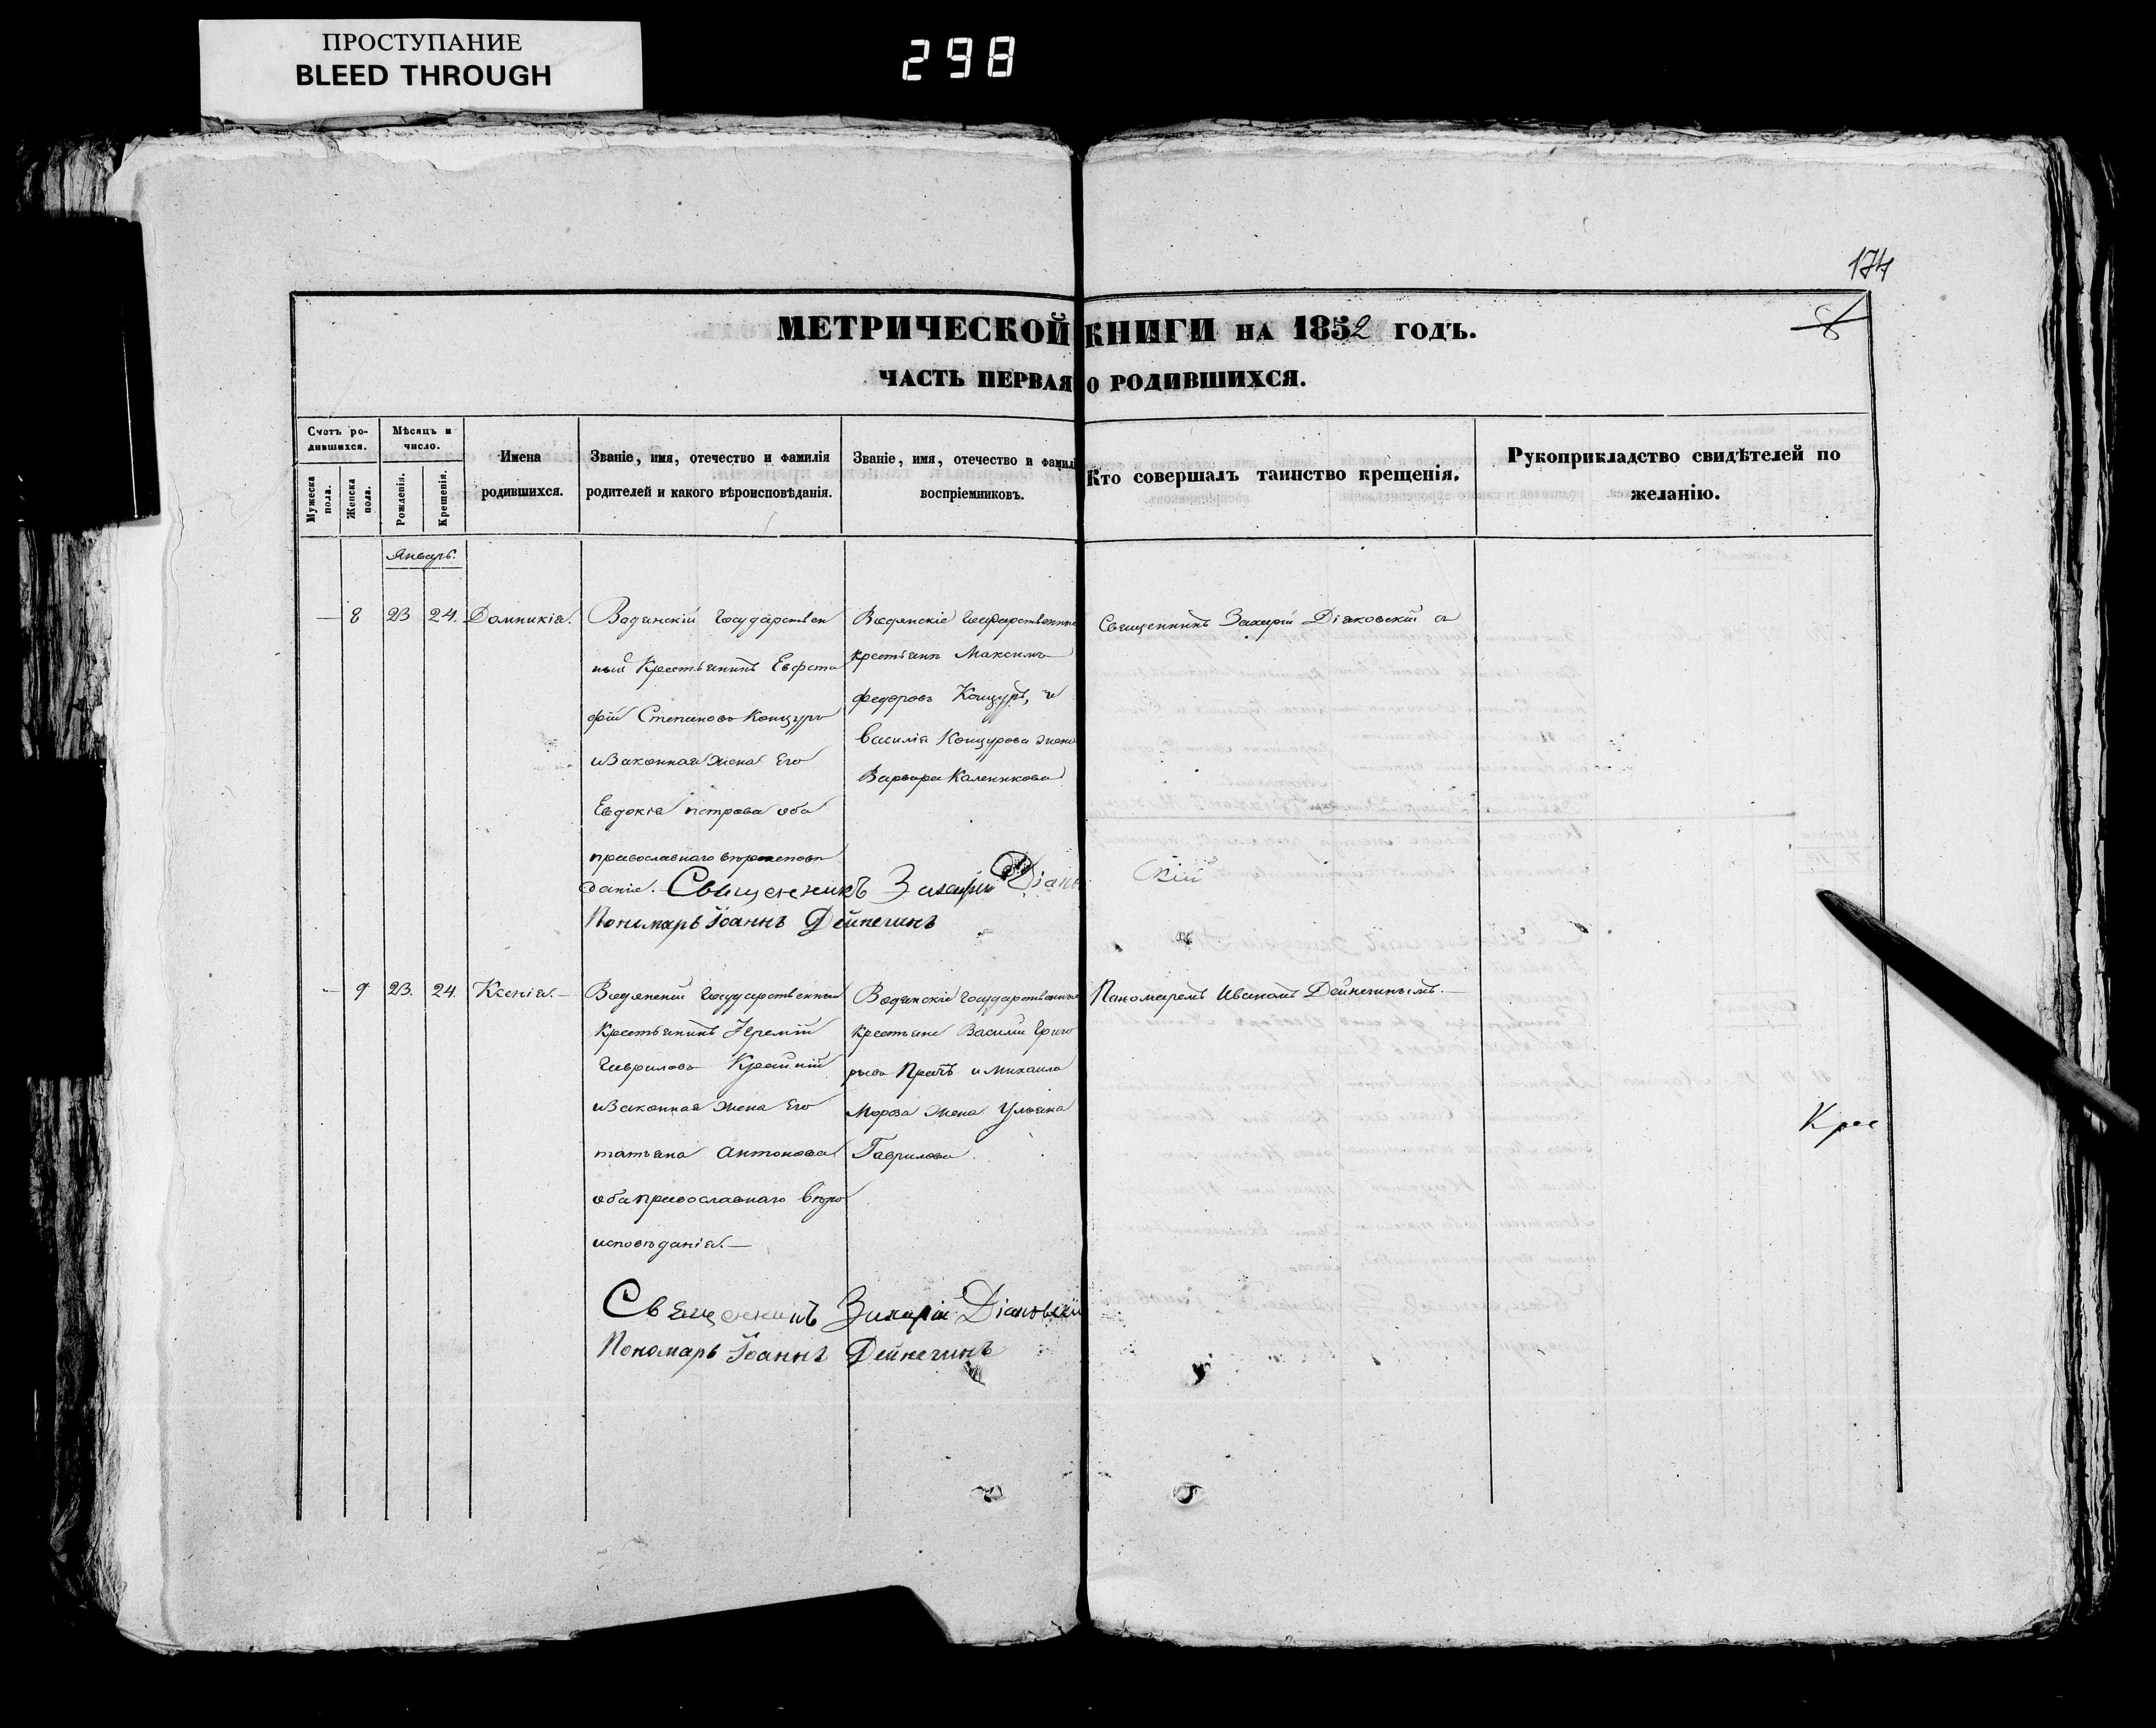 ПРОСТУПАНИЕ
BLEED THROUGH
298
174
МЕТРИЧЕСКОЙ КНИГИ НА 1852 ГОДЪ.
8
ЧАСТЬ ПЕРВАЯ О РОДИВШИХСЯ.
Счетъ родившихся.
Мужеска пола.
Женска пола.
Мѣсяцъ и число.
Рожденія.
Крещенія.
Имена
родившихся.
Званіе, имя, отечество и фамилія
родителей и какого вѣроисповѣданія.
Званіе, имя, отечество и фамил
воспріемниковъ.
Кто совершалъ таинство крещенія.
Рукоприкладство свидѣтелей по
желанію.
Январь.
— 8 23 24. Домникія.
Водянскій Государствен
ный Крестьянинъ Евста
фій Степановъ Концуръ
и Законная Жена Его
Евдокія петрова оба
православнаго вѣроисповѣ
данія.
Водянскіе Государственные
крестьяне Максимъ
федоровъ Концуръ, и
василія Концурова жена
Варвара Каленикова
Священникъ Захарій Діаковскій с
Священникъ Захарій Діаковскій
Пономарь Іоаннъ Дейнегинъ
— 9 23. 24. Ксенія.—
Водянскій Государственный
Крестьянинъ Іеремій
Гавриловъ Крайній
и Законная Жена Его
татьяна Антонова
оба православнаго вѣро
исповѣданія.—
Водянскіе Государственные
крестьяне Василій Григо
рьевъ и Михаила
Мороза Жена Ульяна
Гаврилова.
Пономаремъ Иваномъ Дейнегинымъ.—
Крес
Священникъ Захарій Діаковскій
Пономарь Іоаннъ Дейнегинъ